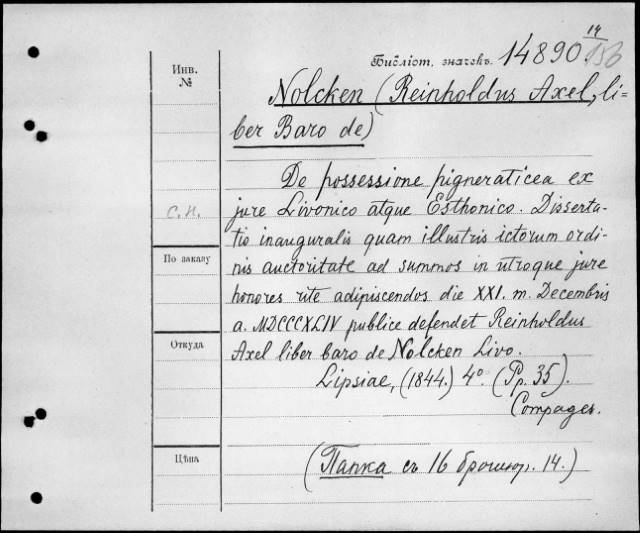 Библіот. значекъ. 14890 14
Инв. №
Nolcken (Reinholdus Axel, li-
ber Baro de)
De possessione pigneraticea ex
с. н. jure Livonico atque Esthonico. Disserta-
tio inauguralis quam illustris ictorum ordi-
По заказу nis auctoritate ad summos in utroque jure
honores rite adipiscendos die XXI. m. Decembris
a. MDCCCXLIV publice defendet Reinholdus
Откуда Axel liber baro de Nolcken Livo.
Lipsiae, (1844.) 4º. (Pp. 35).
Compages.
Цѣна (Папка съ 16 брошюр. 14.)